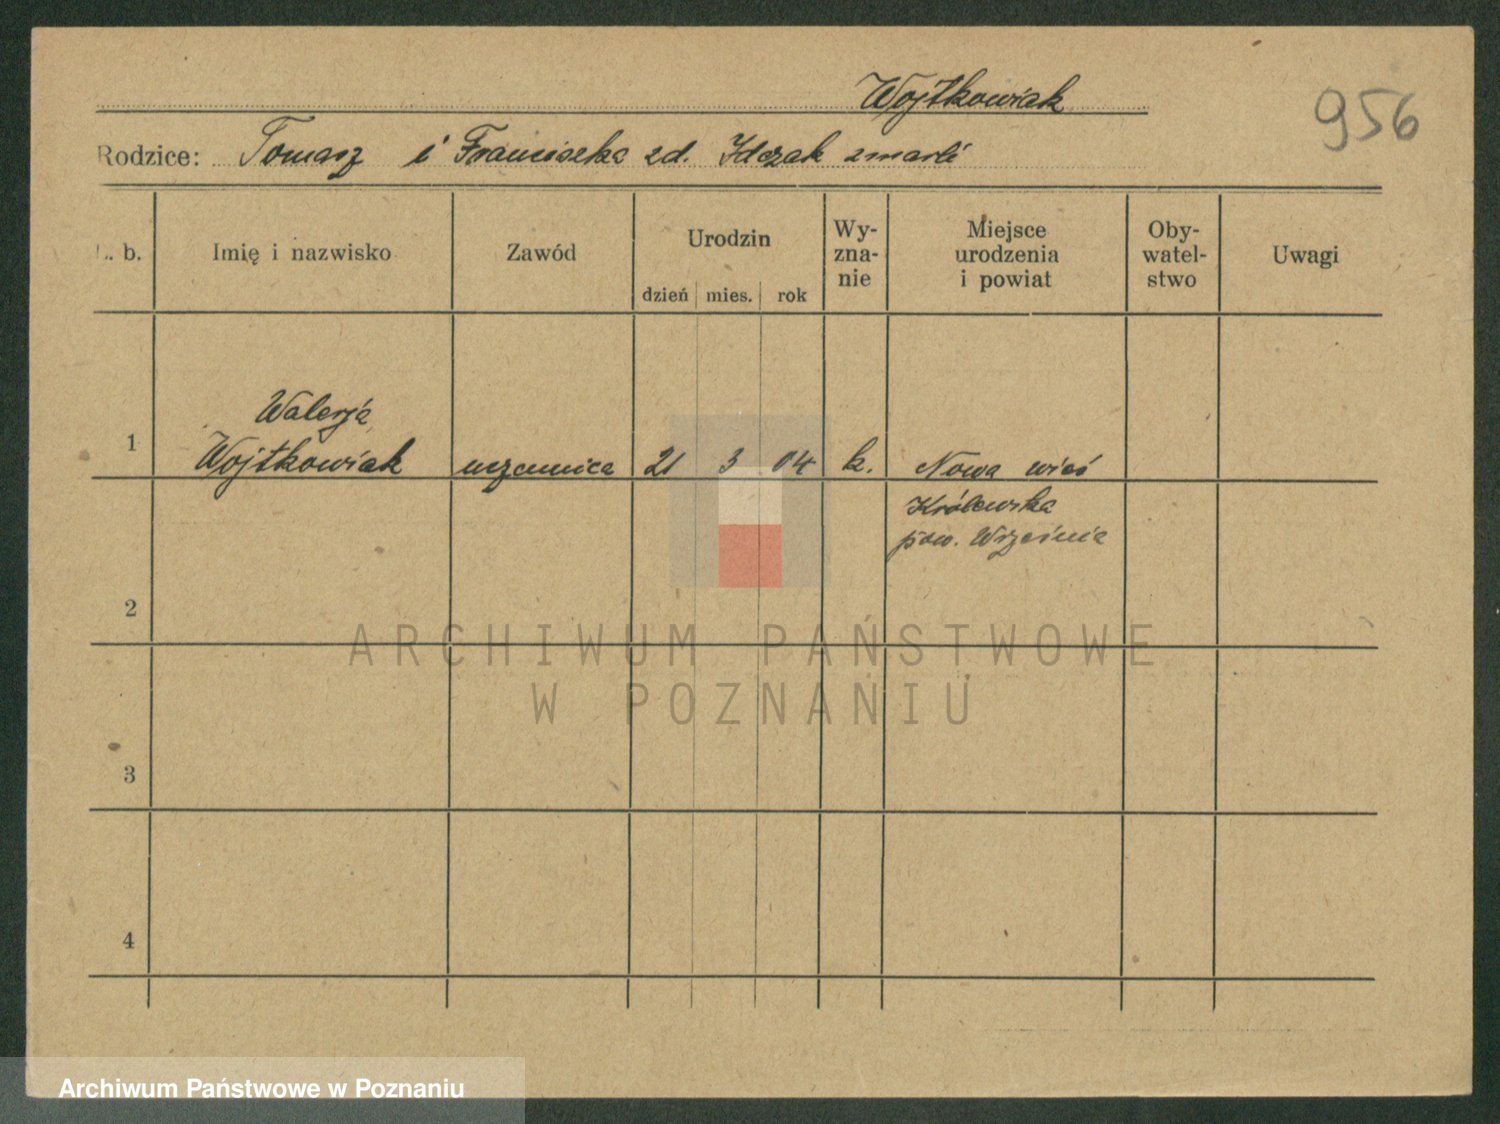 Wojtkowiak
956
Rodzice: Tomasz i Franciszka zd. Idczak zmarli
L. b.
Imię i nazwisko
Zawód
Urodzin
dzień mies. rok
Wy-
zna-
nie
Miejsce
urodzenia
i powiat
Oby-
watel-
stwo
Uwagi
1
Walerja
Wojtkowiak
uczennica
21 3 04
k.
Nowa wieś
Królewska
pow. Września
2
3
4
ARCHIWUM PAŃSTWOWE
W POZNANIU
Archiwum Państwowe w Poznaniu